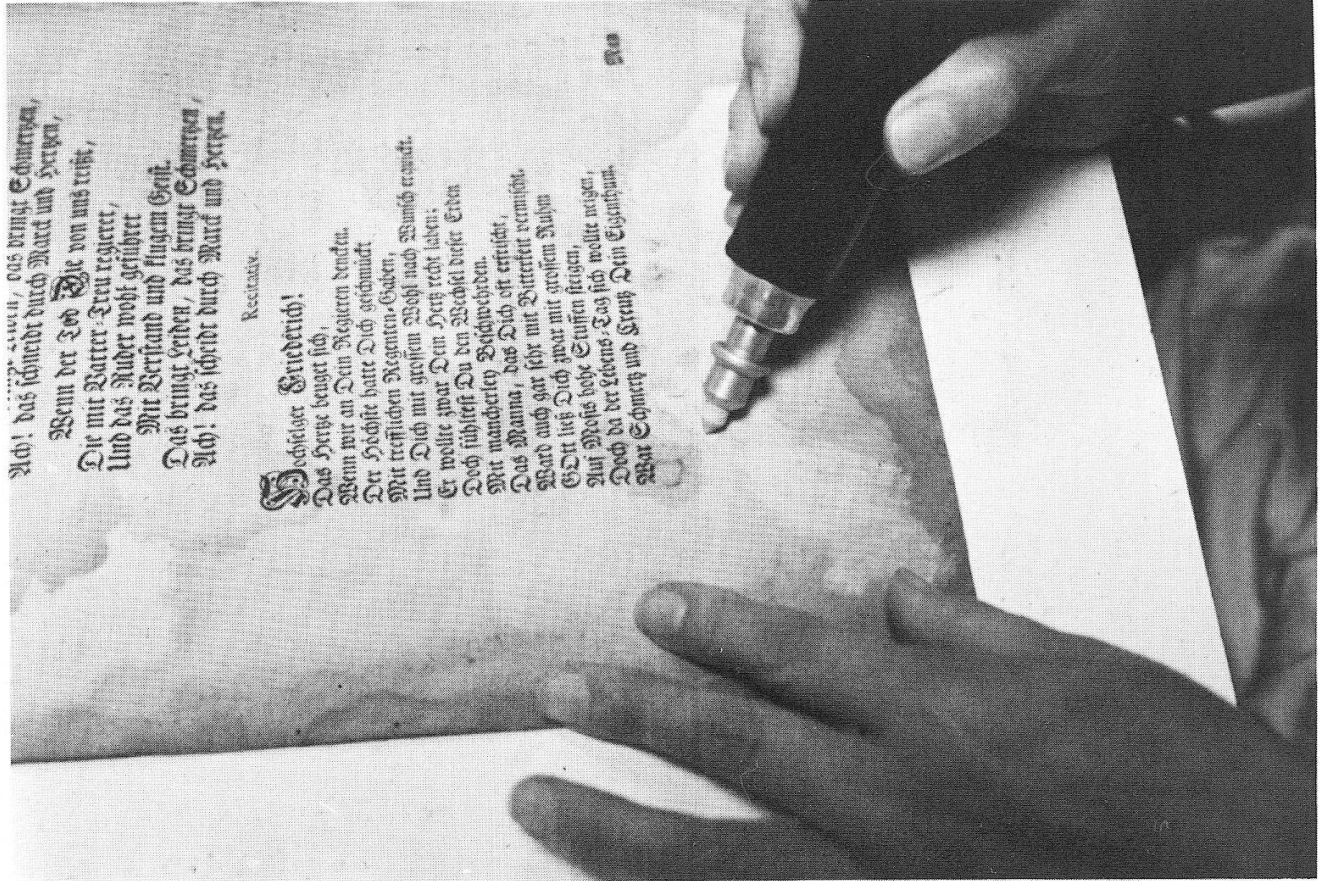 Ach! das schneidt durch Marck und Hertzen,
Wenn der Tod Die von uns reißt,
Die mit Vatter-Treu regieret,
Und das Ruder wohl geführet
Mit Verstand und klugem Geist.
Das bringt Leiden, das bringt Schmertzen,
Ach! das scheidt durch Marck und Hertzen.
Recitativ.
Hochseliger Friederich!
Das Hertze beuget sich,
Wenn wir an Dein Regieren dencken.
Der Höchste hatte Dich geschmückt
Mit trefflichen Regenten-Gaben,
Und Dich mit grossem Wohl nach Wunsch erquickt.
Er wollte zwar Dein Hertz recht laben;
Doch fühltest Du den Wechsel dieser Erden
Mit mancherley Beschwehrden.
Das Manna, das Dich oft erfrischt,
Ward auch gar sehr mit Bitterkeit vermischt.
GOtt ließ Dich zwar mit grossem Ruhm
Auf Mosis hohe Stuffen steigen,
Doch da der Lebens-Tag sich wollte neigen,
War Schmertz und Creutz Dein Eigenthum.